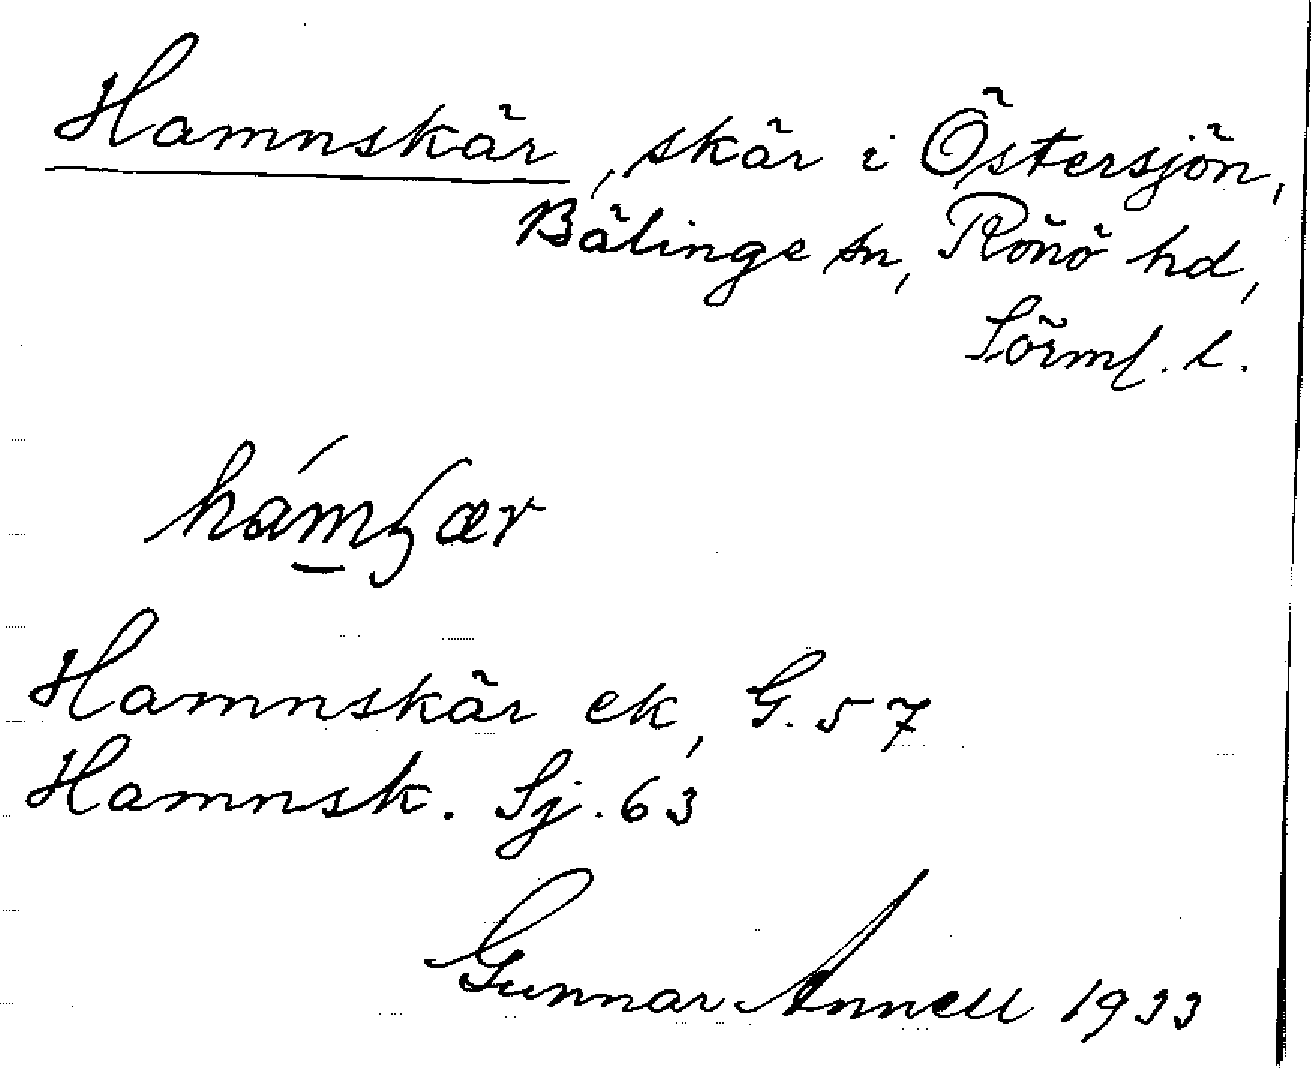 Hamnskär, skär i Östersjön,
Bälinge sn, Rönö hd,
Sörml. l.
Hamnskär ek, G. 57
Hamnsk. Sj. 63
Gunnar Annell 1933